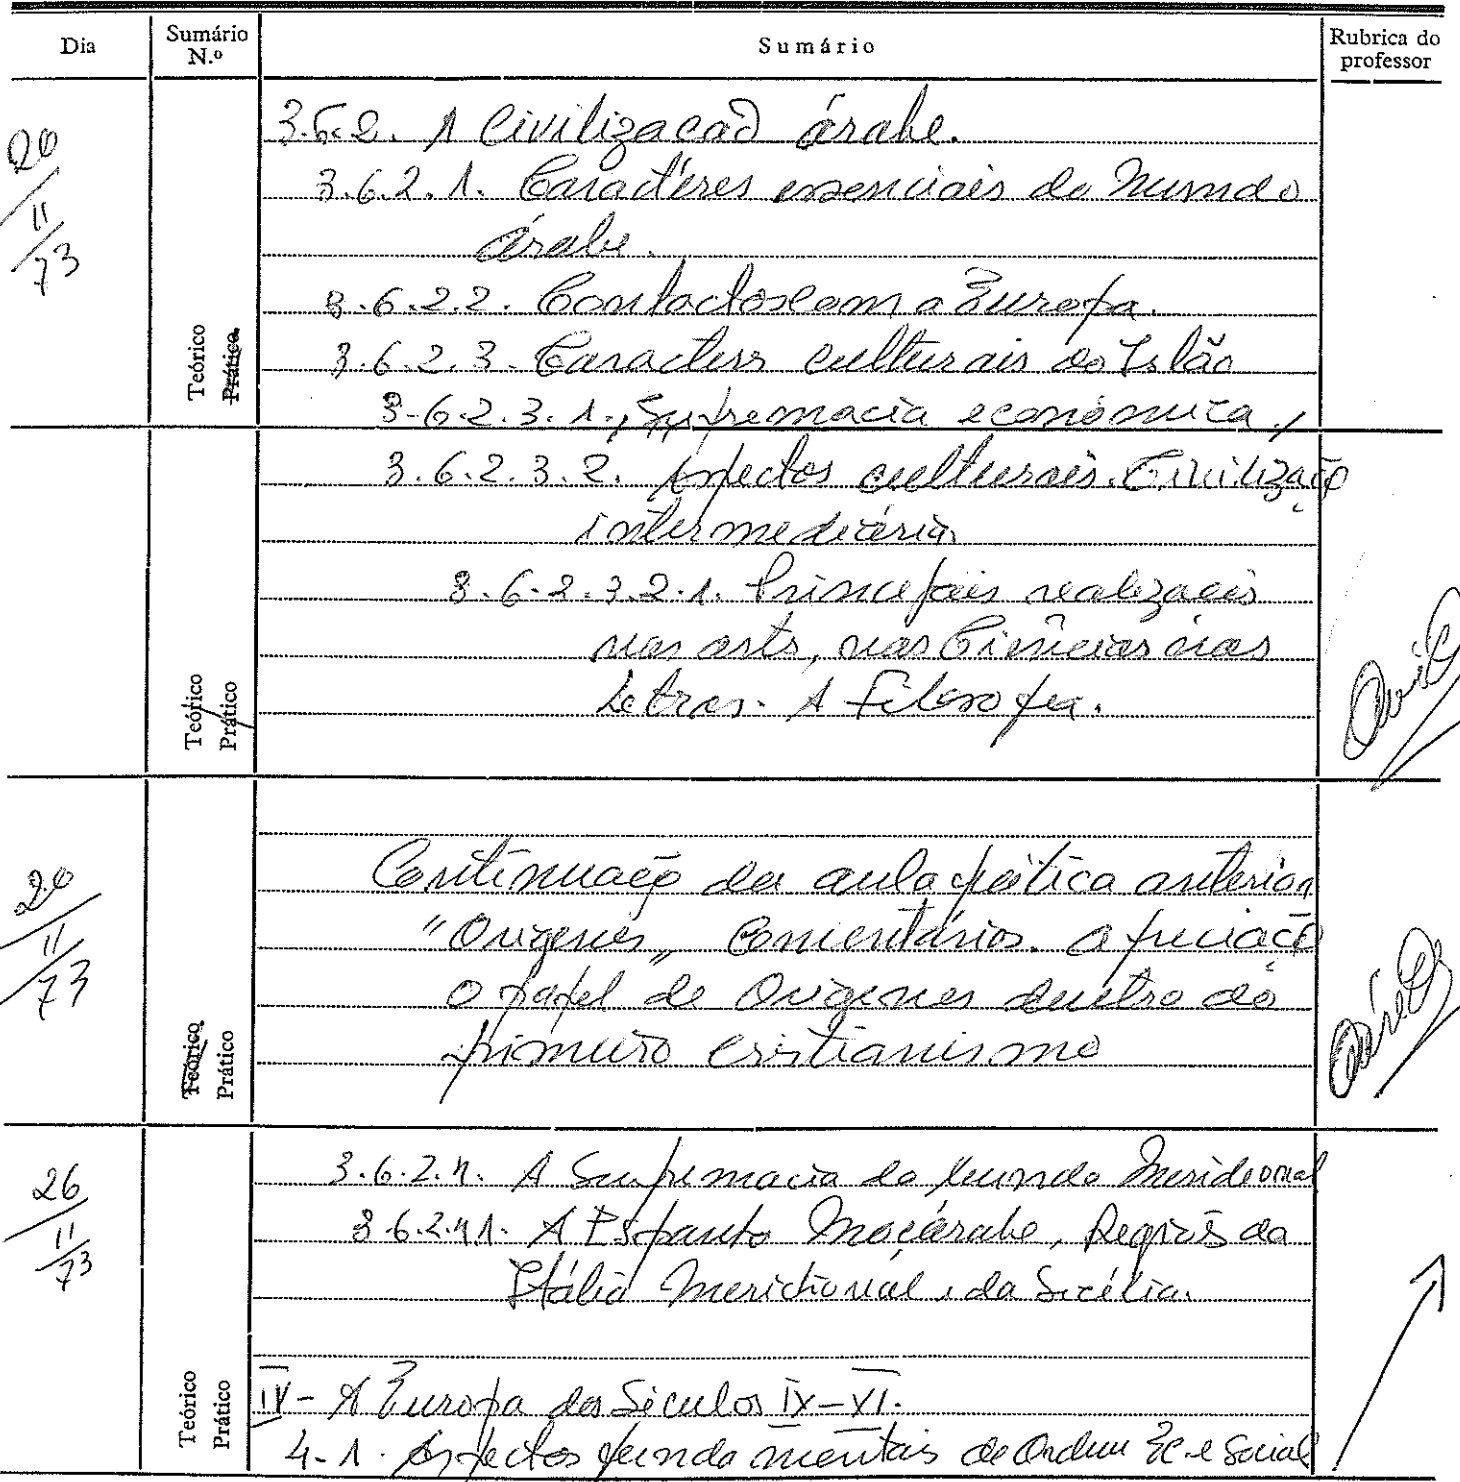 Dia Sumário N.º Sumário Rubrica do professor
20/11/73
3.6.2. A Civilização árabe.
3.6.2.1. Caractéres essenciais do Mundo
árabe.
3.6.2.2. Contactos com a Europa.
3.6.2.3. Caracteres culturais do Islão
3.6.2.3.1. Supremacia económica,
Teórico Prático
3.6.2.3.2. Aspectos culturais. Civilização
intermediária
3.6.2.3.2.1. Principais realizações
nas artes, nas Ciências nas
Letras. A Filosofia.
Teórico Prático
20/11/73
Continuação da aula prática anterior
"Origenes" Comentários. Apreciação
o papel de Origenes dentro do
primeiro cristianismo
Teórico Prático
26/11/73
3.6.2.4. A Supremacia do Mundo Meridional
3.6.2.4.1. A Moçárabe, Regiões da
Itália Meridional e da Sicília.
IV - A Europa dos Séculos IX-XI.
4.1. Aspectos fundamentais de Ordem Ec. e Social
Teórico Prático